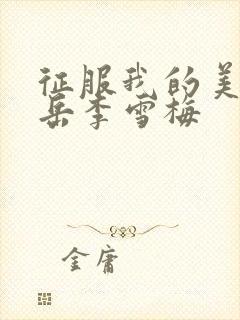 征服我的美
岳李雪梅
金庸